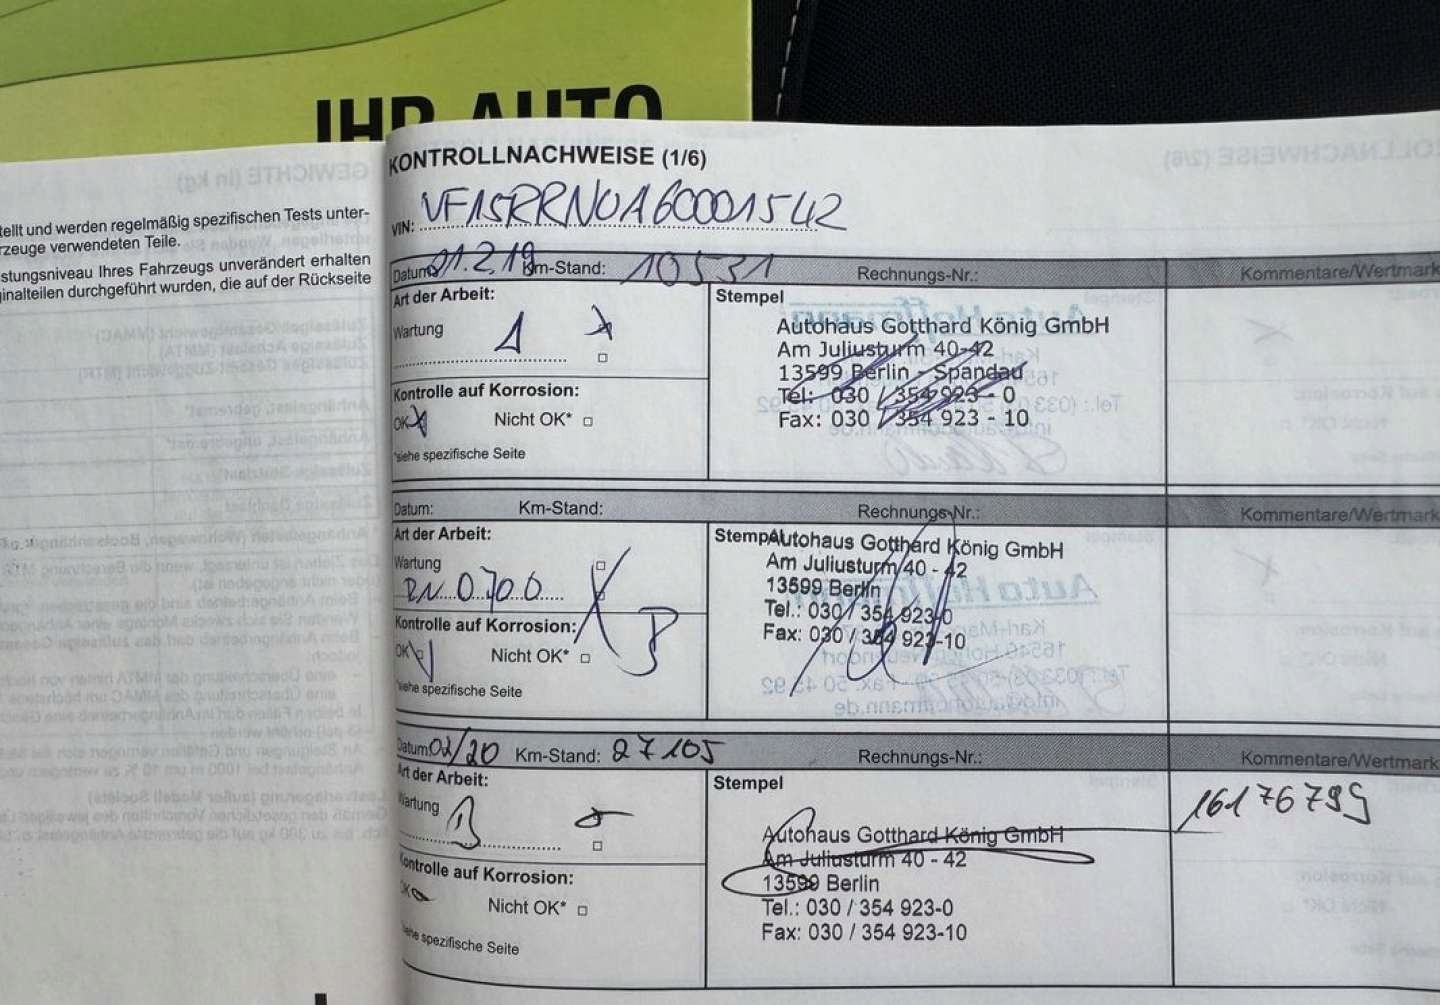 IHR AUTO
tellt und werden regelmäßig spezifischen Tests unter-
rzeuge verwendeten Teile.
stungsniveau Ihres Fahrzeugs unverändert erhalten
ginalteilen durchgeführt wurden, die auf der Rückseite
KONTROLLNACHWEISE (1/6)
VIN: VF15RRN0A60001542
Datum: 01.2.19 Km-Stand: 10531 Rechnungs-Nr.: Kommentare/Wertmark
Art der Arbeit:
Wartung A
Kontrolle auf Korrosion:
OK Nicht OK*
*siehe spezifische Seite
Stempel
Autohaus Gotthard König GmbH
Am Juliusturm 40-42
13599 Berlin - Spandau
Tel: 030 / 354 923 - 0
Fax: 030 / 354 923 - 10
Datum: Km-Stand: Rechnungs-Nr.: Kommentare/Wertmark
Art der Arbeit:
Wartung
0700
Kontrolle auf Korrosion:
OK Nicht OK*
*siehe spezifische Seite
Stempel
Autohaus Gotthard König GmbH
Am Juliusturm 40 - 42
13599 Berlin
Tel.: 030 / 354 923-0
Fax: 030 / 354 923-10
Datum: 02/20 Km-Stand: 27105 Rechnungs-Nr.: Kommentare/Wertmark
Art der Arbeit:
Wartung B
Kontrolle auf Korrosion:
OK Nicht OK*
siehe spezifische Seite
Stempel
Autohaus Gotthard König GmbH
Am Juliusturm 40 - 42
13599 Berlin
Tel.: 030 / 354 923-0
Fax: 030 / 354 923-10
16176799